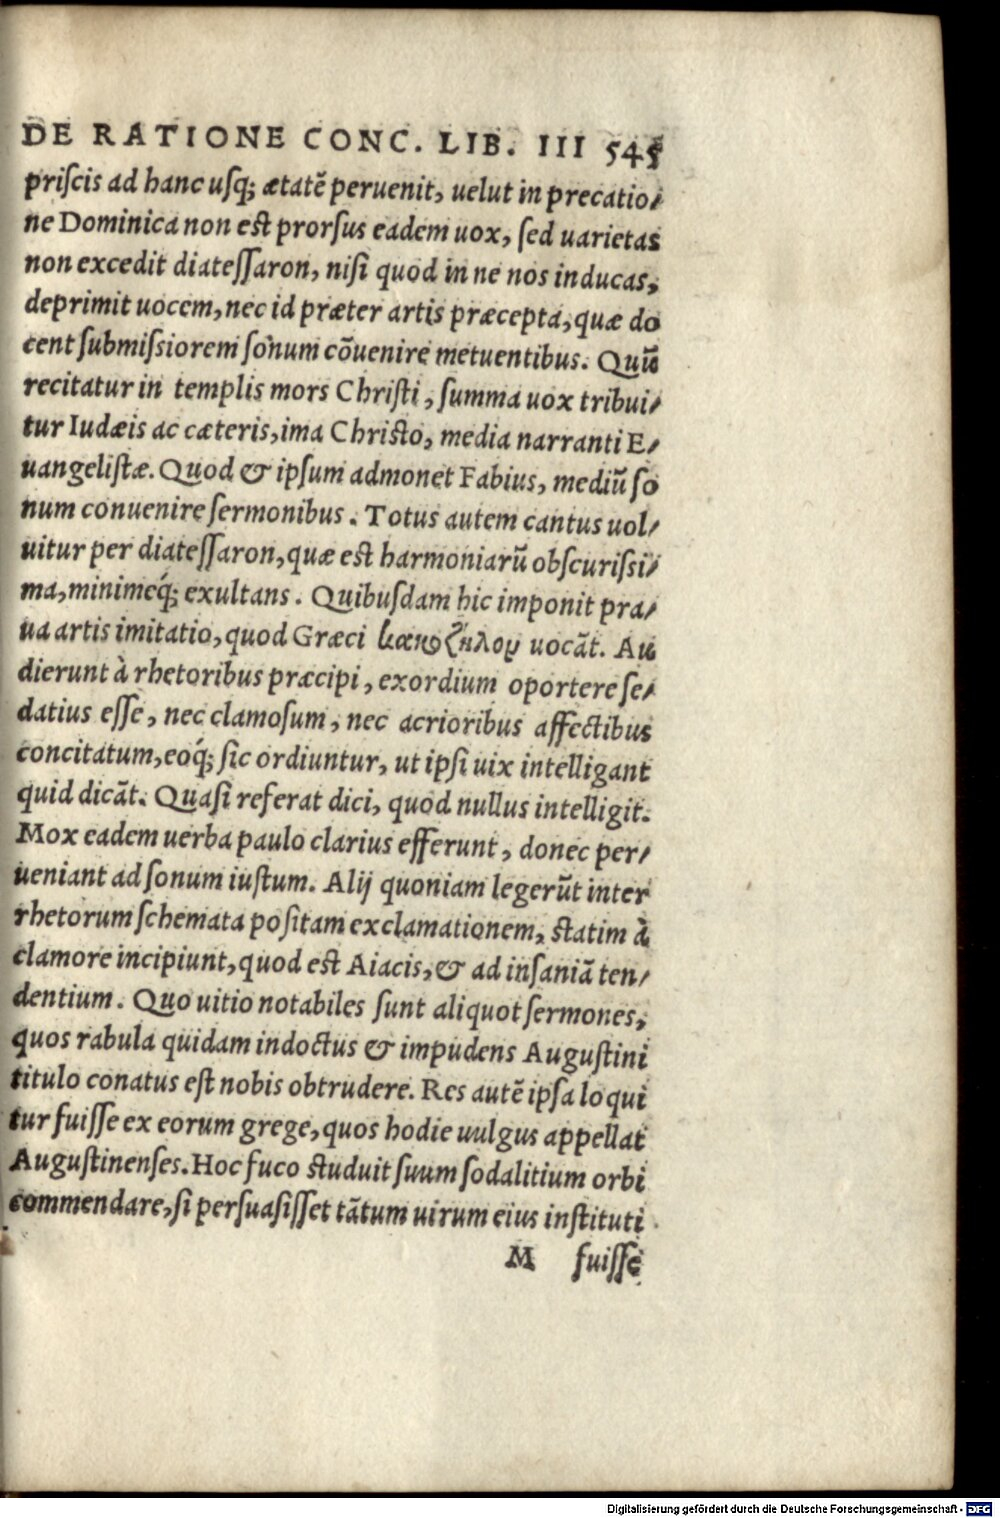 DE RATIONE CONC. LIB. III 545
priſcis ad hanc uſq; ætatẽ peruenit, uelut in precatio-
ne Dominica non eſt prorſus eadem uox, ſed uarietas
non excedit diateſſaron, niſi quod in ne nos inducas,
deprimit uocem, nec id præter artis præcepta, quæ do
cent ſubmiſsiorem ſonum cõuenire metuentibus. Quũ
recitatur in templis mors Chriſti, ſumma uox tribui-
tur Iudæis ac cæteris, ima Chriſto, media narranti E-
uangeliſtæ. Quod & ipſum admonet Fabius, mediũ ſo
num conuenire ſermonibus. Totus autem cantus uol-
uitur per diateſſaron, quæ eſt harmoniarũ obſcuriſsi-
ma, minimeq́; exultans. Quibuſdam hic imponit pra-
ua artis imitatio, quod Græci κακοζηλον uocãt. Au
dierunt à rhetoribus præcipi, exordium oportere ſe-
datius eſſe, nec clamoſum, nec acrioribus affectibus
concitatum, eoq́; ſic ordiuntur, ut ipſi uix intelligant
quid dicãt. Quaſi referat dici, quod nullus intelligit.
Mox eadem uerba paulo clarius efferunt, donec per-
ueniant ad ſonum iuſtum. Alij quoniam legerũt inter
rhetorum ſchemata poſitam exclamationem, ſtatim à
clamore incipiunt, quod eſt Aiacis, & ad inſaniã ten-
dentium. Quo uitio notabiles ſunt aliquot ſermones,
quos rabula quidam indoctus & impudens Auguſtini
titulo conatus eſt nobis obtrudere. Res autẽ ipſa loqui
tur fuiſſe ex eorum grege, quos hodie uulgus appellat
Auguſtinenſes. Hoc fuco ſtuduit ſuum ſodalitium orbi
commendare, ſi perſuaſiſſet tãtum uirum eius inſtituti
M fuiſſe
Digitalisierung gefördert durch die Deutsche Forschungsgemeinschaft - DFG